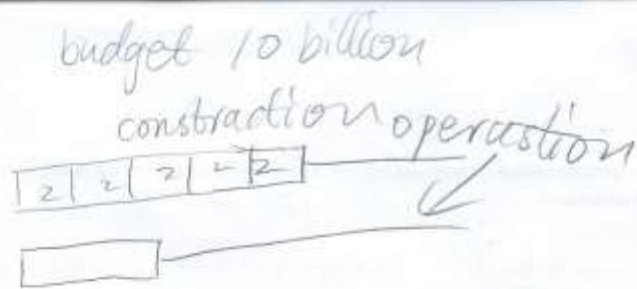 budget 10 billion
constraction operastion
2 2 2 2 2